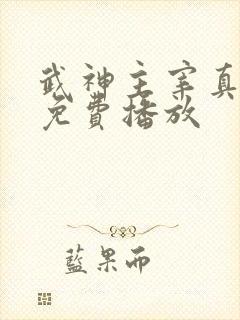 武神主宰真
免費播放
藍果而